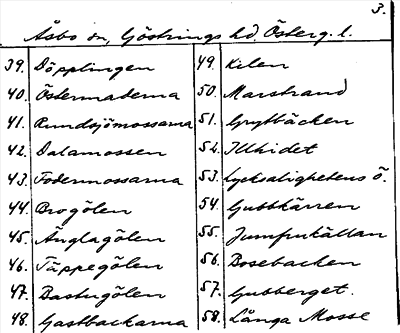 3.
Åsbo sn, Göstrings hd, Österg. l.
39. Döpplingen
40. Östermaderna
41. Rundsjömossarna
42. Dalamossen
43. Fodermossarna
44. Brogölen
45. Änglagölen
46. Täppegölen
47. Bastugölen
48. Gastbackarna
49. Kilen
50. Marstrand
51. Grytbäcken
52. Illhidet
53. Lycksalighetens Ö.
54. Gubbkärren
55. Jumfrukällan
56. Bosebacken
57. Gubberget.
58. Långa Mosse